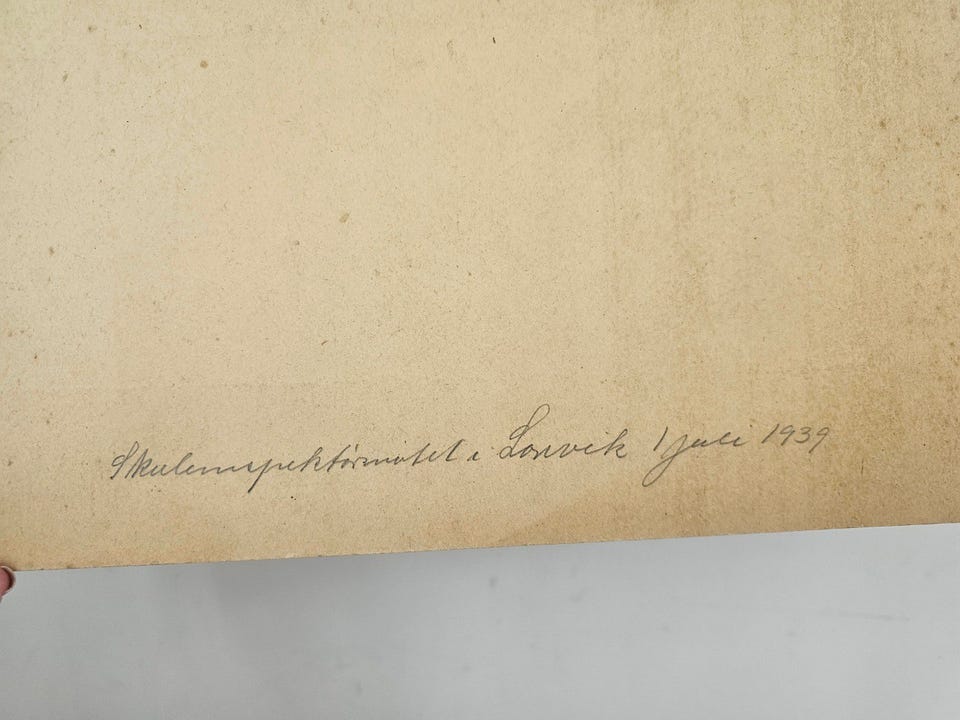 Skuleinspektørmøtet i Larvik 1 juli 1939